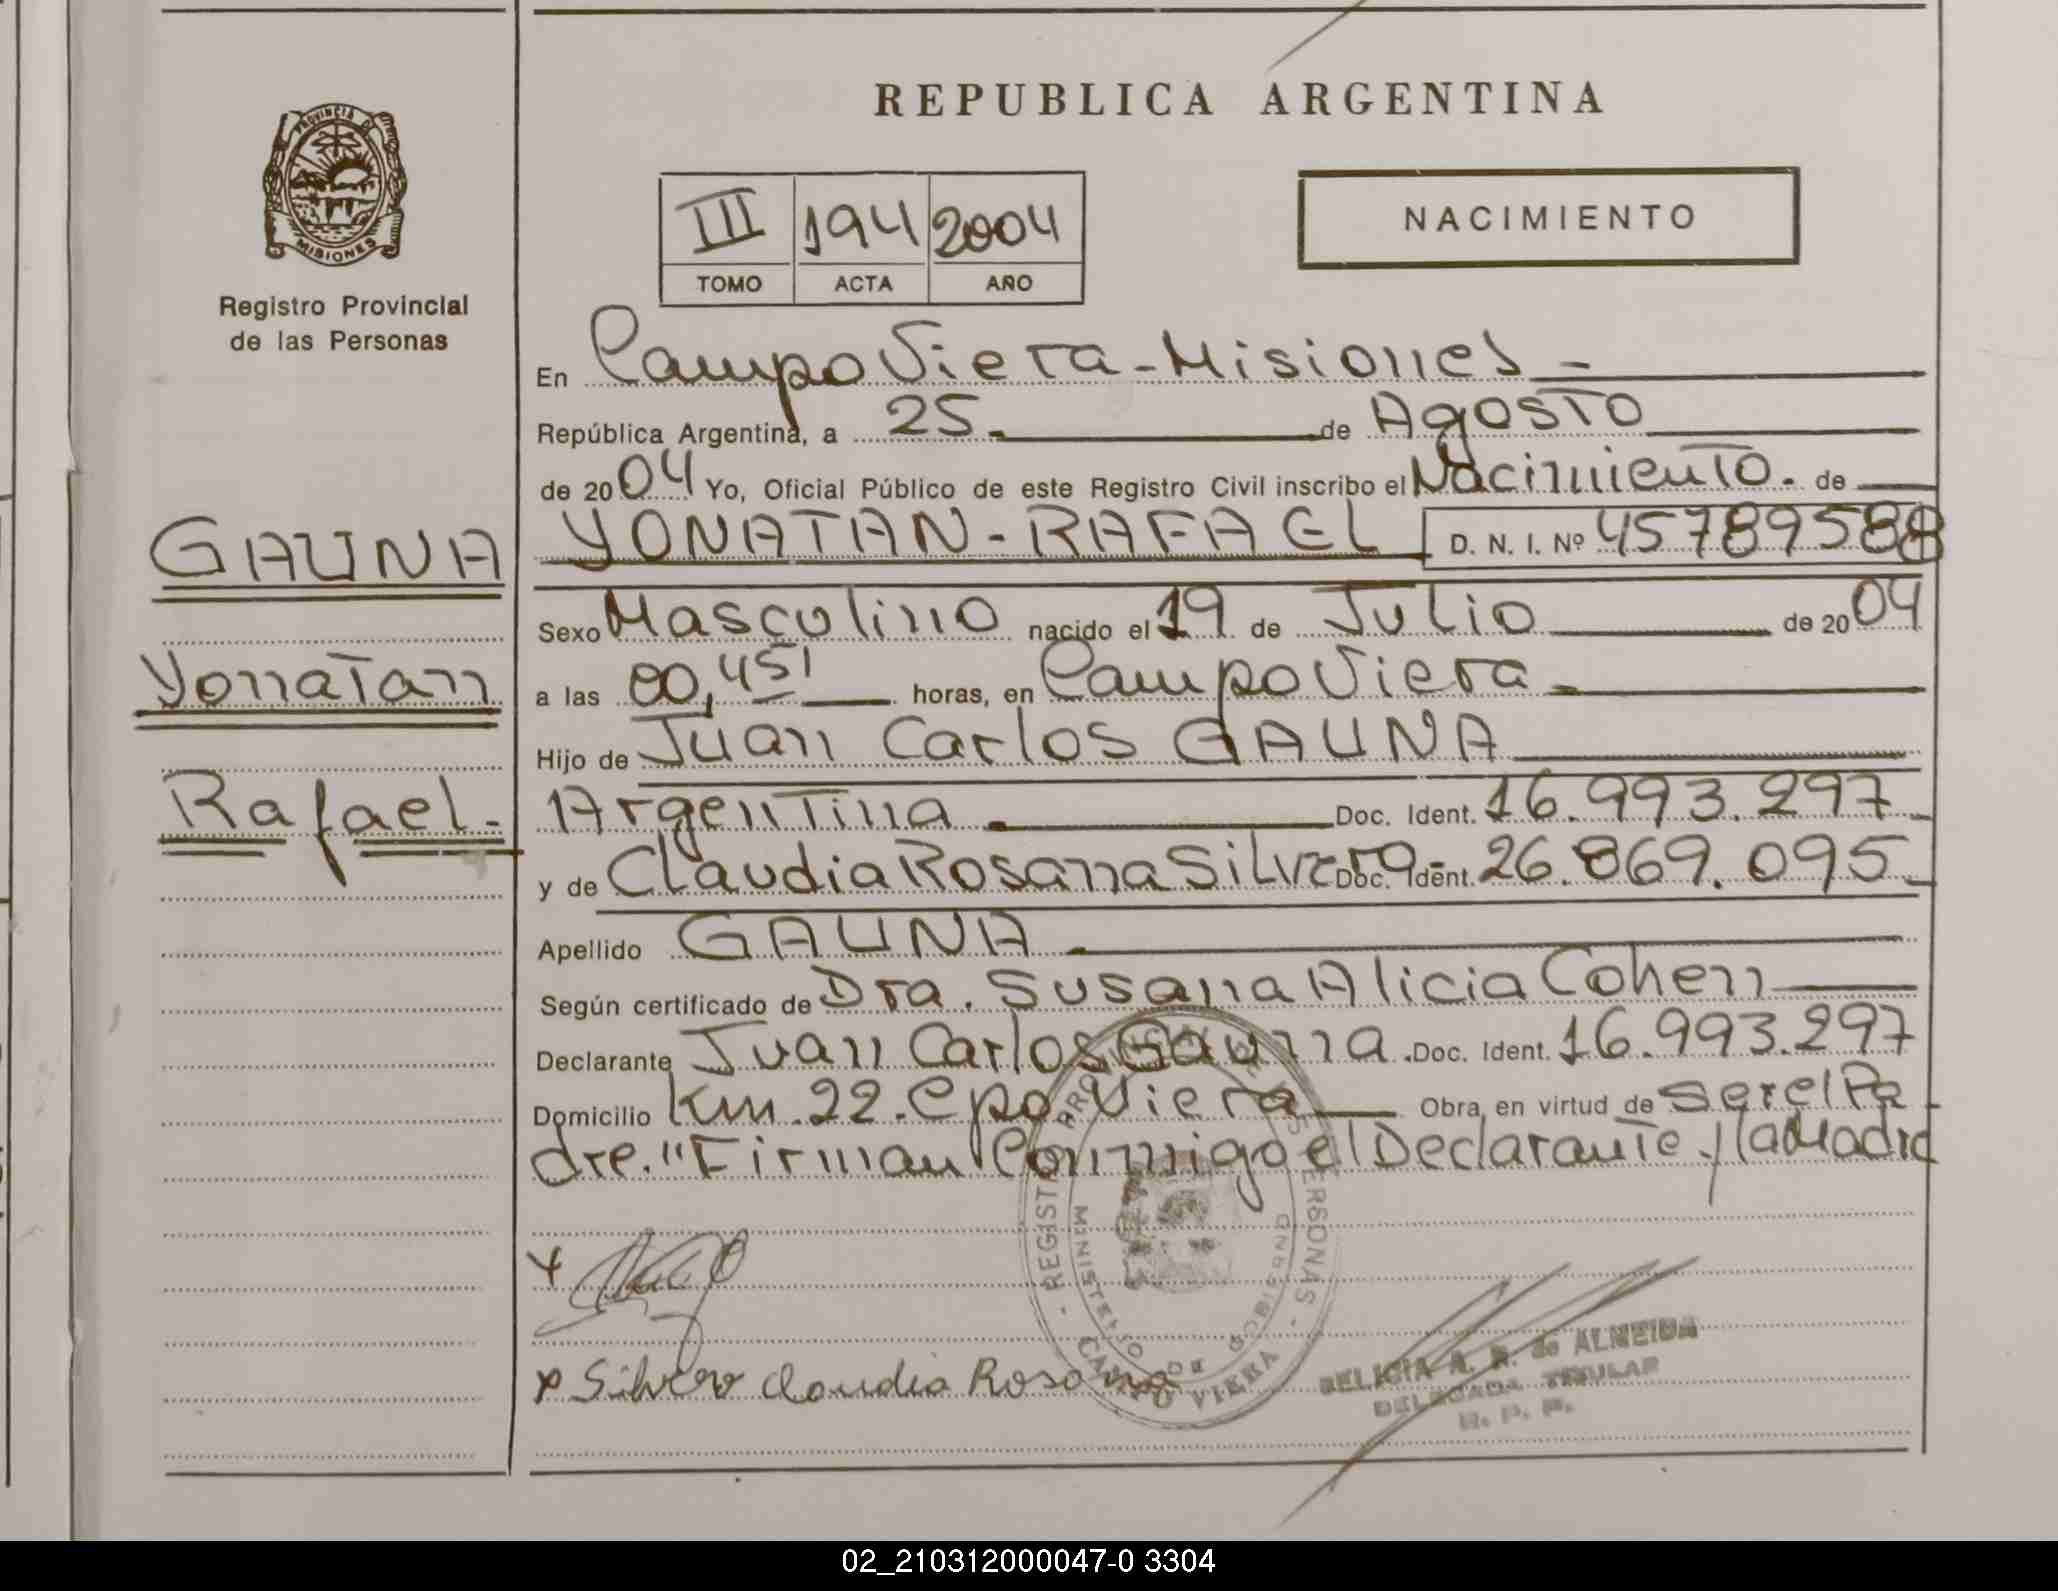 REPUBLICA ARGENTINA
PROVINCIA DE
MISIONES
Registro Provincial
de las Personas
III 194 2004
TOMO ACTA AÑO
NACIMIENTO
En Campo Viera - Misiones -
República Argentina, a 25 de Agosto
de 2004 Yo, Oficial Público de este Registro Civil inscribo el Nacimiento. de
GAUNA
YONATAN - RAFAEL D. N. I. Nº 45789588
Sexo Masculino nacido el 19 de Julio de 2004
Yonatan
a las 00,45' horas, en Campo Viera
Hijo de Juan Carlos GAUNA
Rafael.
Argentina Doc. Ident. 16.993.297
y de Claudia Rosana Silvero - Doc. Ident. 26.869.095
Apellido GAUNA
Según certificado de Dra. Susana Alicia Cohen
Declarante Juan Carlos Gauna. Doc. Ident. 16.993.297
Domicilio Km. 22. Cpo Viera Obra en virtud de ser el Pa
dre. "Firman Conmigo el Declarante y la Madre
REGISTRO PROVINCIAL DE LAS PERSONAS
MINISTERIO DE GOBIERNO
CAMPO VIERA
x Silvero Claudia Rosana
DELICIA A. R. de ALMEIDA
DELEGADA TITULAR
R. P. P.
02_210312000047-0 3304